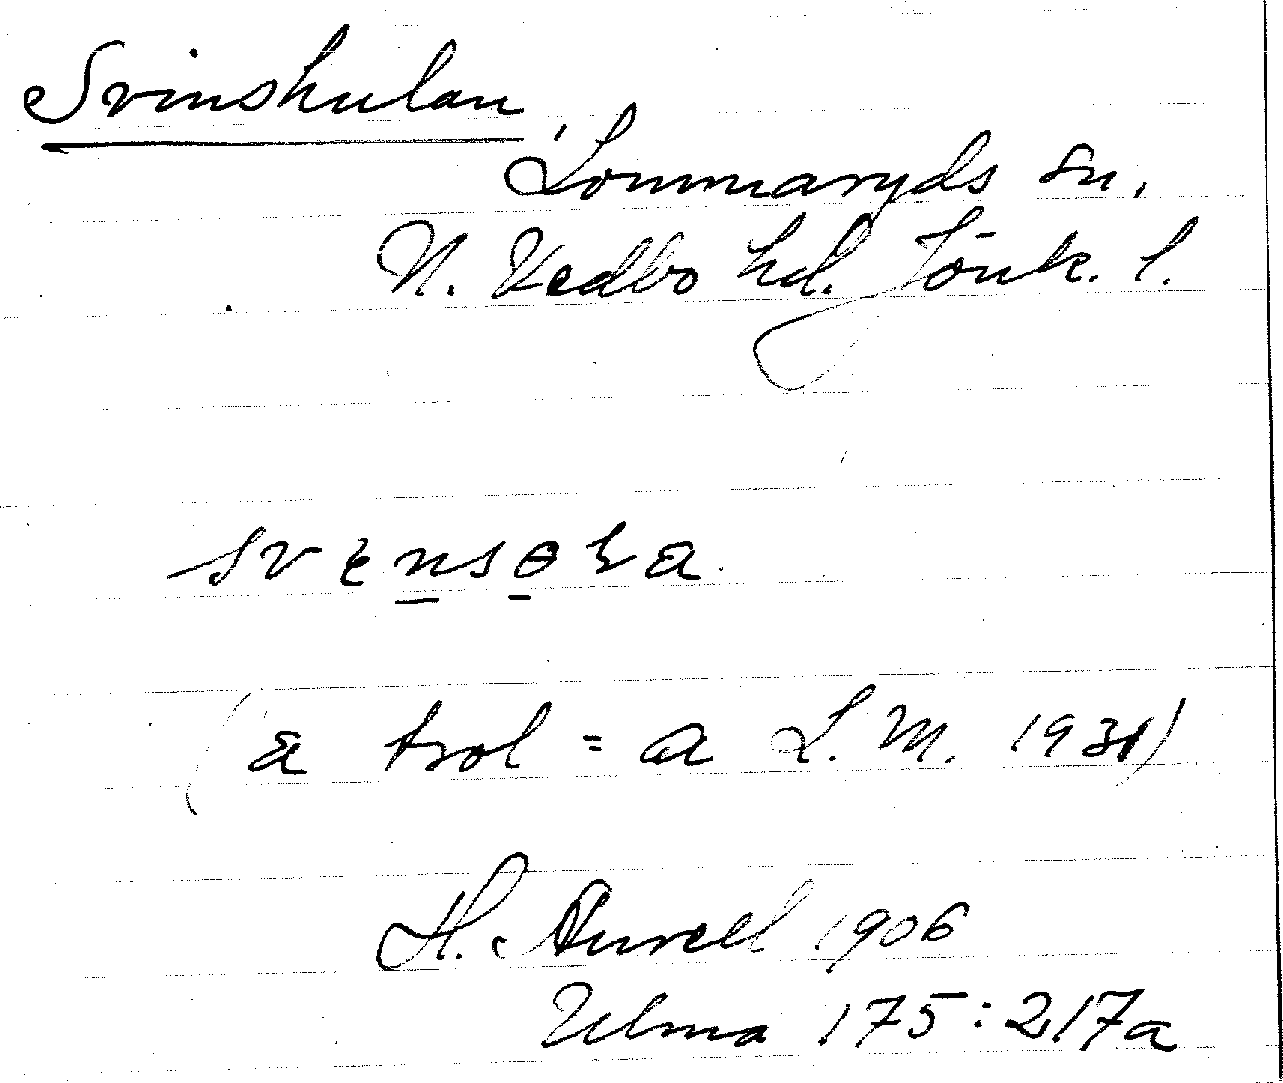 Svinskulan,
Lommaryds sn.
N. Vedbo hd. Jönk. l.
(a trol = a L. M. 1931)
H. Aurell 1906
Ulma 175:217a